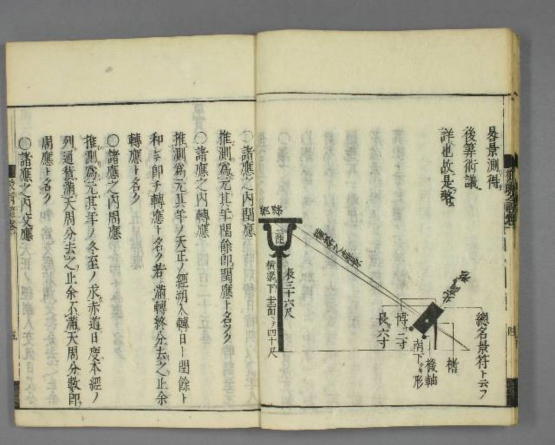 晷景測得
後算術議
詳也故是略
總名景符ト云フ
楷
機軸
南下リノ形
博二寸
長六寸
表三十六尺
横梁下圭面ヨリ四十尺
○諸應之内閏應
推測為元其年閏餘即閏應ト名ク
○諸應之内轉應
推測為元其年ノ天正ノ經朔入轉日ト閏餘ト
和シ即チ轉應ト名ク若シ滿轉終分去之止余
轉應ト名ク
○諸應之内周應
推測為元其年ノ冬至ノ赤道日度本經ノ
列通貫滿天周分去之止余不滿天周分數即
周應ト名ク
○諸應之内交應